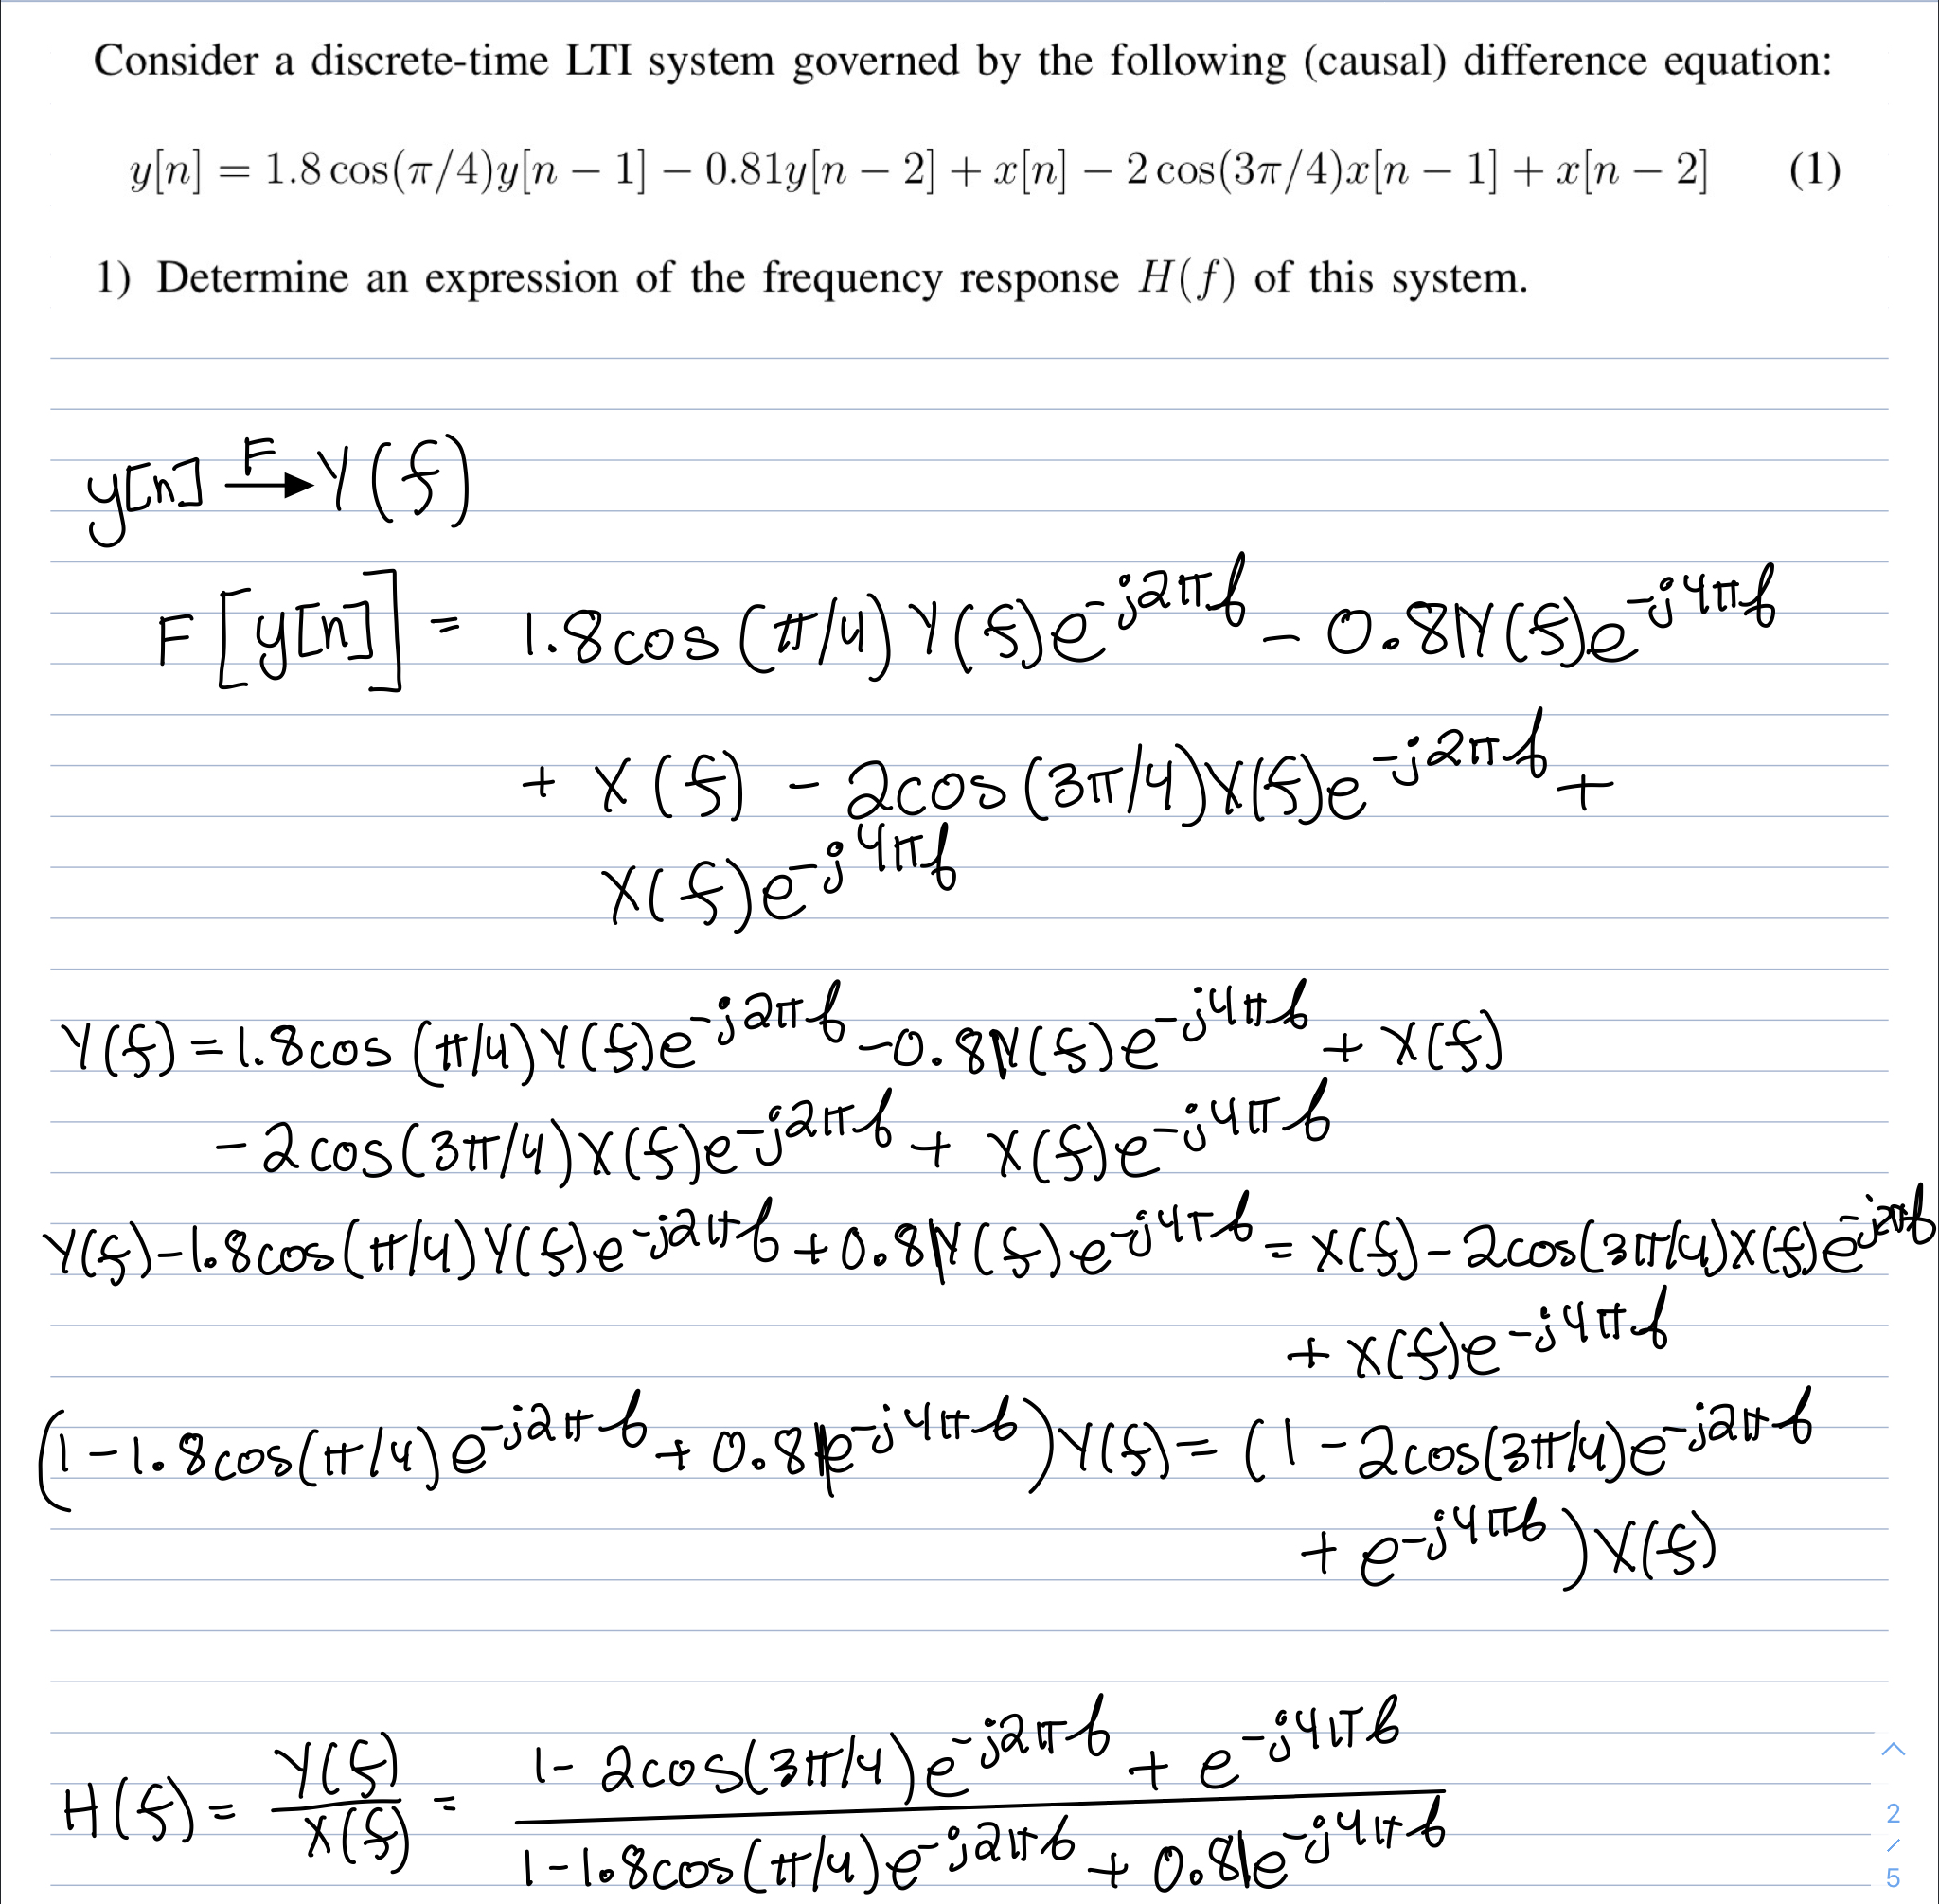 Consider a discrete-time LTI system governed by the following (causal) difference equation:
y[n] = 1.8 cos(π/4)y[n − 1] − 0.81y[n − 2] + x[n] − 2 cos(3π/4)x[n − 1] + x[n − 2] (1)
1) Determine an expression of the frequency response H(f) of this system.
y[n] F→ Y(f)
F[y[n]] = 1.8cos(π/4)Y(f)e^-j2πf − 0.81Y(f)e^-j4πf
+ X(f) − 2cos(3π/4)X(f)e^-j2πf +
X(f)e^-j4πf
Y(f) = 1.8cos(π/4)Y(f)e^-j2πf − 0.81Y(f)e^-j4πf + X(f)
− 2cos(3π/4)X(f)e^-j2πf + X(f)e^-j4πf
Y(f) − 1.8cos(π/4)Y(f)e^-j2πf + 0.81Y(f)e^-j4πf = X(f) − 2cos(3π/4)X(f)e^-j2πf
+ X(f)e^-j4πf
(1 − 1.8cos(π/4)e^-j2πf + 0.81e^-j4πf)Y(f) = (1 − 2cos(3π/4)e^-j2πf
+ e^-j4πf)X(f)
H(f) = Y(f)/X(f) = (1 − 2cos(3π/4)e^-j2πf + e^-j4πf)/(1 − 1.8cos(π/4)e^-j2πf + 0.81e^-j4πf)
2
/
5